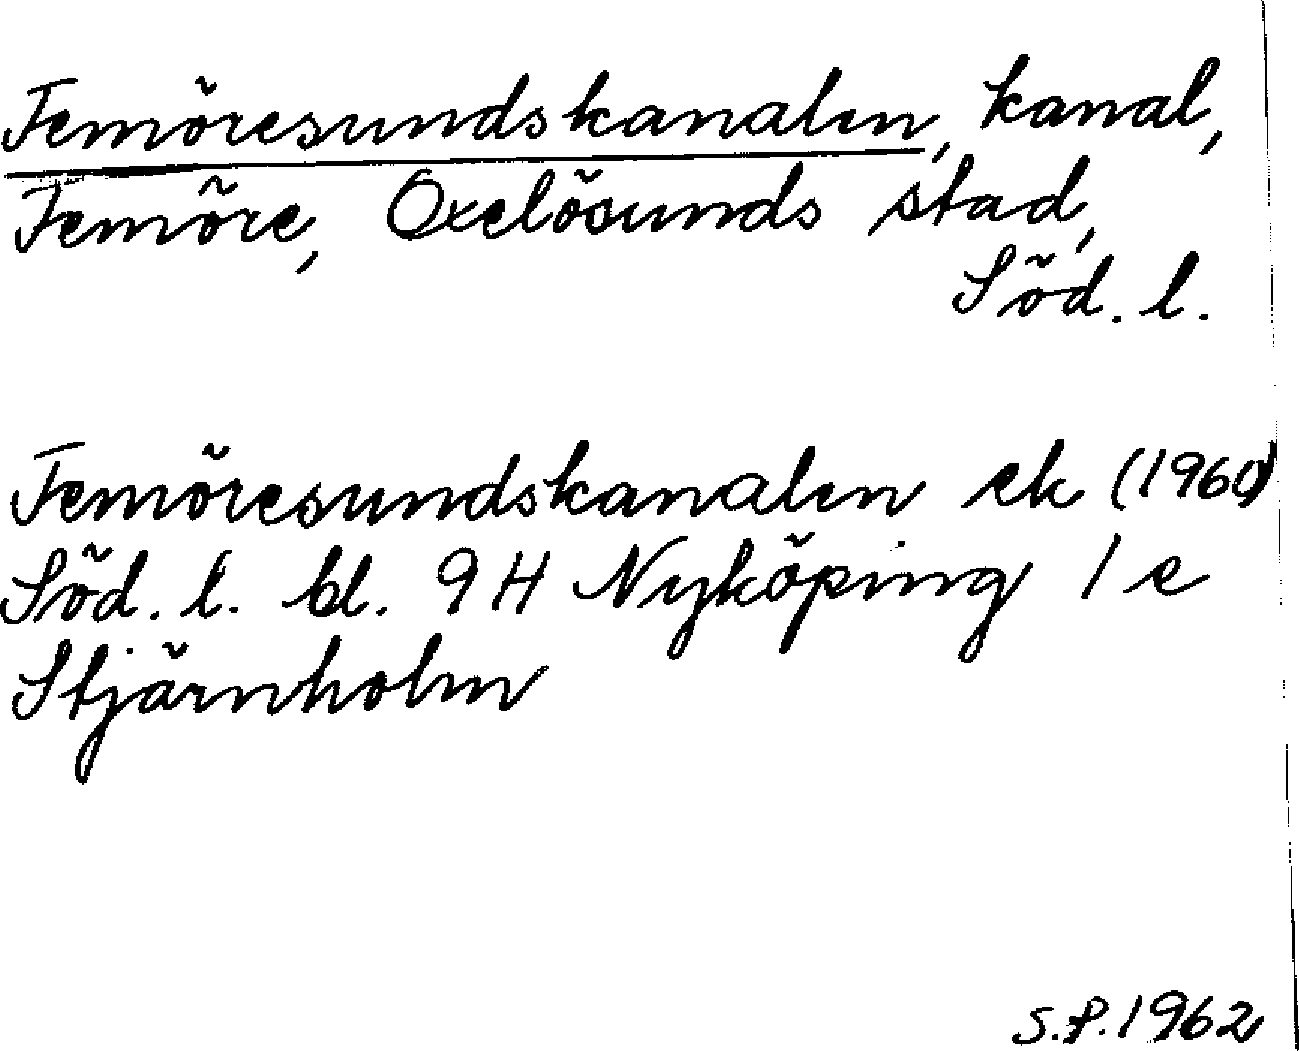 Femöresundskanalen, kanal,
Femöre, Oxelösunds stad,
Söd. l.
Femöresundskanalen ek (1960)
Söd. l. bl. 9 H Nyköping 1 e
Stjärnholm
S.P. 1962